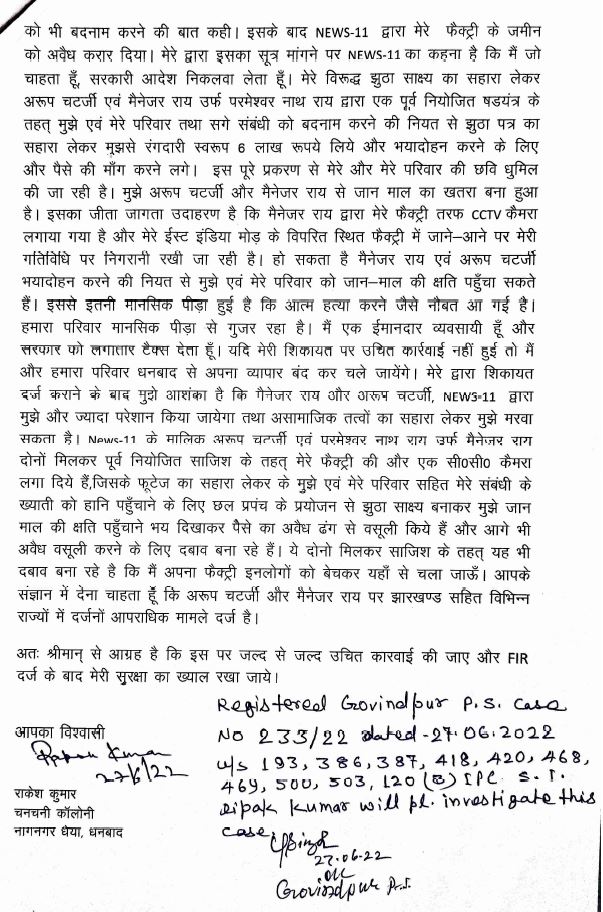 को भी बदनाम करने की बात कही। इसके बाद NEWS-11 द्वारा मेरे फैक्ट्री के जमीन
को अवैध करार दिया। मेरे द्वारा इसका सूत्र मांगने पर NEWS-11 का कहना है कि मैं जो
चाहता हूँ, सरकारी आदेश निकलवा लेता हूँ। मेरे विरूद्ध झुठा साक्ष्य का सहारा लेकर
अरूप चटर्जी एवं मैनेजर राय उर्फ परमेश्वर नाथ राय द्वारा एक पूर्व नियोजित षडयंत्र के
तहत् मुझे एवं मेरे परिवार तथा सगे संबंधी को बदनाम करने की नियत से झुठा पत्र का
सहारा लेकर मुझसे रंगदारी स्वरूप 6 लाख रूपये लिये और भयादोहन करने के लिए
और पैसे की माँग करने लगे। इस पूरे प्रकरण से मेरे और मेरे परिवार की छवि धुमिल
की जा रही है। मुझे अरूप चटर्जी और मैनेजर राय से जान माल का खतरा बना हुआ
है। इसका जीता जागता उदाहरण है कि मैनेजर राय द्वारा मेरे फैक्ट्री तरफ CCTV कैमरा
लगाया गया है और मेरे ईस्ट इंडिया मोड़ के विपरित स्थित फैक्ट्री में जाने–आने पर मेरी
गतिविधि पर निगरानी रखी जा रही है। हो सकता है मैनेजर राय एवं अरूप चटर्जी
भयादोहन करने की नियत से मुझे एवं मेरे परिवार को जान–माल की क्षति पहुँचा सकते
हैं। इससे इतनी मानसिक पीड़ा हुई है कि आत्म हत्या करने जैसे नौबत आ गई है।
हमारा परिवार मानसिक पीड़ा से गुजर रहा है। मैं एक ईमानदार व्यवसायी हूँ और
सरकार को लगातार टैक्स देता हूँ। यदि मेरी शिकायत पर उचित कार्रवाई नहीं हुई तो मैं
और हमारा परिवार धनबाद से अपना व्यापार बंद कर चले जायेंगे। मेरे द्वारा शिकायत
दर्ज कराने के बाद मुझे आशंका है कि मैनेजर राय और अरूप चटर्जी, NEWS-11 द्वारा
मुझे और ज्यादा परेशान किया जायेगा तथा असामाजिक तत्वों का सहारा लेकर मुझे मरवा
सकता है। News-11 के मालिक अरूप चटर्जी एवं परमेश्वर नाथ राय उर्फ मैनेजर राय
दोनों मिलकर पूर्व नियोजित साजिश के तहत् मेरे फैक्ट्री की और एक सी0सी0 कैमरा
लगा दिये हैं,जिसके फूटेज का सहारा लेकर के मुझे एवं मेरे परिवार सहित मेरे संबंधी के
ख्याती को हानि पहुँचाने के लिए छल प्रपंच के प्रयोजन से झुठा साक्ष्य बनाकर मुझे जान
माल की क्षति पहुँचाने भय दिखाकर पैसे का अवैध ढंग से वसूली किये हैं और आगे भी
अवैध वसूली करने के लिए दबाव बना रहे हैं। ये दोनो मिलकर साजिश के तहत् यह भी
दबाव बना रहे है कि मैं अपना फैक्ट्री इनलोगों को बेचकर यहाँ से चला जाऊँ। आपके
संज्ञान में देना चाहता हूँ कि अरूप चटर्जी और मैनेजर राय पर झारखण्ड सहित विभिन्न
राज्यों में दर्जनों आपराधिक मामले दर्ज है।
अतः श्रीमान् से आग्रह है कि इस पर जल्द से जल्द उचित कारवाई की जाए और FIR
दर्ज के बाद मेरी सुरक्षा का ख्याल रखा जाये।
Registered Govindpur P.S. Case
No 233/22 dated-27.06.2022
u/s 193, 386, 387, 418, 420, 468,
469, 500, 503, 120 (B) IPC S.I.
Dipak Kumar will pl. investigate this
case.
27.06.22
O/C
Govindpur P.S.
आपका विश्वासी
Rakesh Kumar
27/6/22
राकेश कुमार
चनचनी कॉलोनी
नागनगर धैया, धनबाद